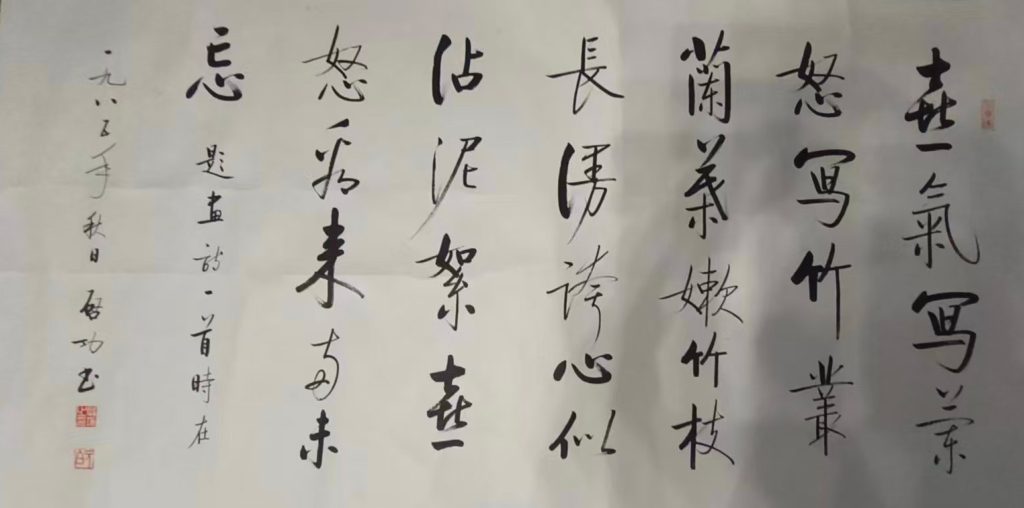 喜氣寫蘭
怒寫竹叢
蘭葉嫩竹枝
長漫誇心似
沾泥絮喜
怒看來兩未
忘 題畫詩一首時在
一九八五年秋日 啓功書